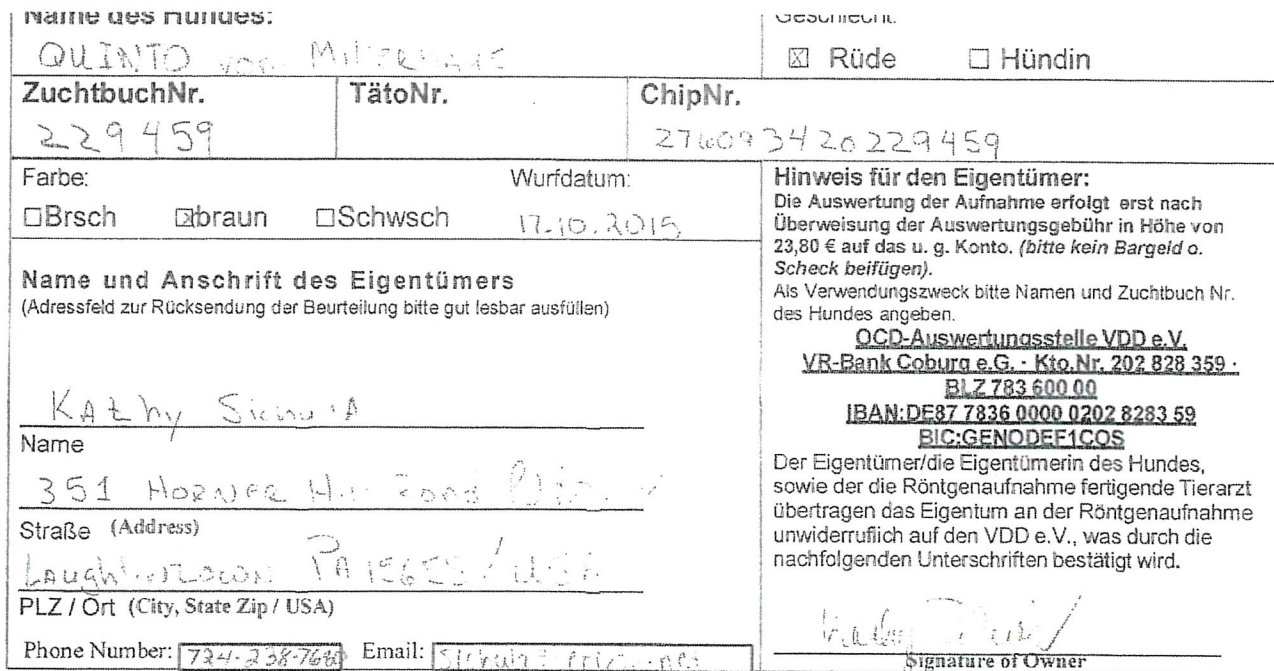 Name des Hundes:
Geschlecht:
QUINTO von
☒ Rüde ☐ Hündin
ZuchtbuchNr. TätoNr. ChipNr.
229459
276093420229459
Farbe: Wurfdatum:
☐Brsch ☒braun ☐Schwsch 17.10.2015
Name und Anschrift des Eigentümers
(Adressfeld zur Rücksendung der Beurteilung bitte gut lesbar ausfüllen)
Kathy
Name
351 HORNER
Straße (Address)
PA 15655 / USA
PLZ / Ort (City, State Zip / USA)
Phone Number: 724-238- Email:
Hinweis für den Eigentümer:
Die Auswertung der Aufnahme erfolgt erst nach
Überweisung der Auswertungsgebühr in Höhe von
23,80 € auf das u. g. Konto. (bitte kein Bargeld o.
Scheck beifügen).
Als Verwendungszweck bitte Namen und Zuchtbuch Nr.
des Hundes angeben.
OCD-Auswertungsstelle VDD e.V.
VR-Bank Coburg e.G. - Kto.Nr. 202 828 359 -
BLZ 783 600 00
IBAN:DE87 7836 0000 0202 8283 59
BIC:GENODEF1COS
Der Eigentümer/die Eigentümerin des Hundes,
sowie der die Röntgenaufnahme fertigende Tierarzt
übertragen das Eigentum an der Röntgenaufnahme
unwiderruflich auf den VDD e.V., was durch die
nachfolgenden Unterschriften bestätigt wird.
Signature of Owner